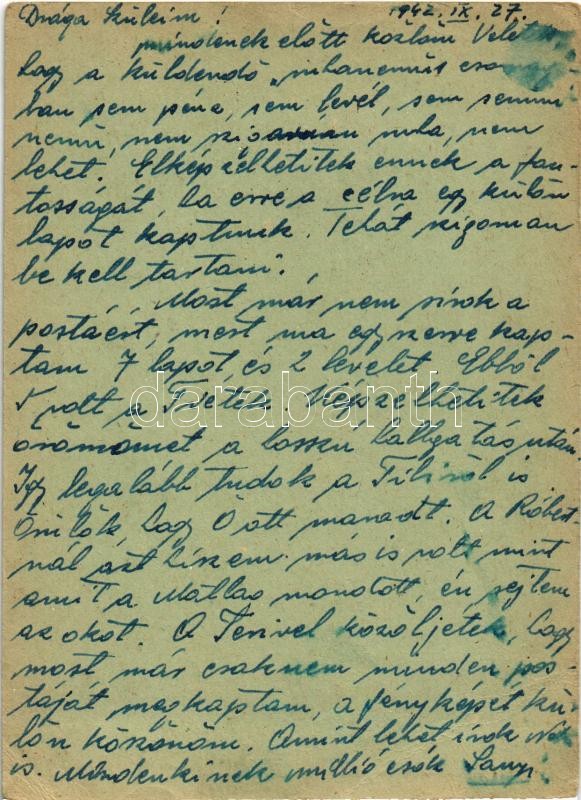 Drága Szüleim! 1942. IX. 27.
mindenek előtt közlöm Veletek
hogy a küldendő „ruhaneműs csomag
ban sem pénz, sem levél, sem semmi
nemű, nem szigorúan ruha, nem
lehet. Elképzelhetitek ennek a fon-
tosságát, ha erre a célra egy külön
lapot kaptunk. Tehát szigorúan
be kell tartani.
Most már nem sírok a
postáért, mert ma egyszerre kap-
tam 7 lapot, és 2 levelet. Ebből
volt a Tietek. Képzelhetitek
örömömet a hosszú hallgatás után.
Így legalább tudok a Tibiről is
Örülök, hogy Ő ott maradt. A Róbert-
nál azt hiszem más is volt mint
amit a Matlao mondott, én sejtem
az okot. A Terivel közöljétek, hogy
most már csaknem minden pos-
táját megkaptam, a fényképet kü-
lön köszönöm. Amint lehet írok Neki
is. Mindenkinek millió csók Sanyi
darabanth